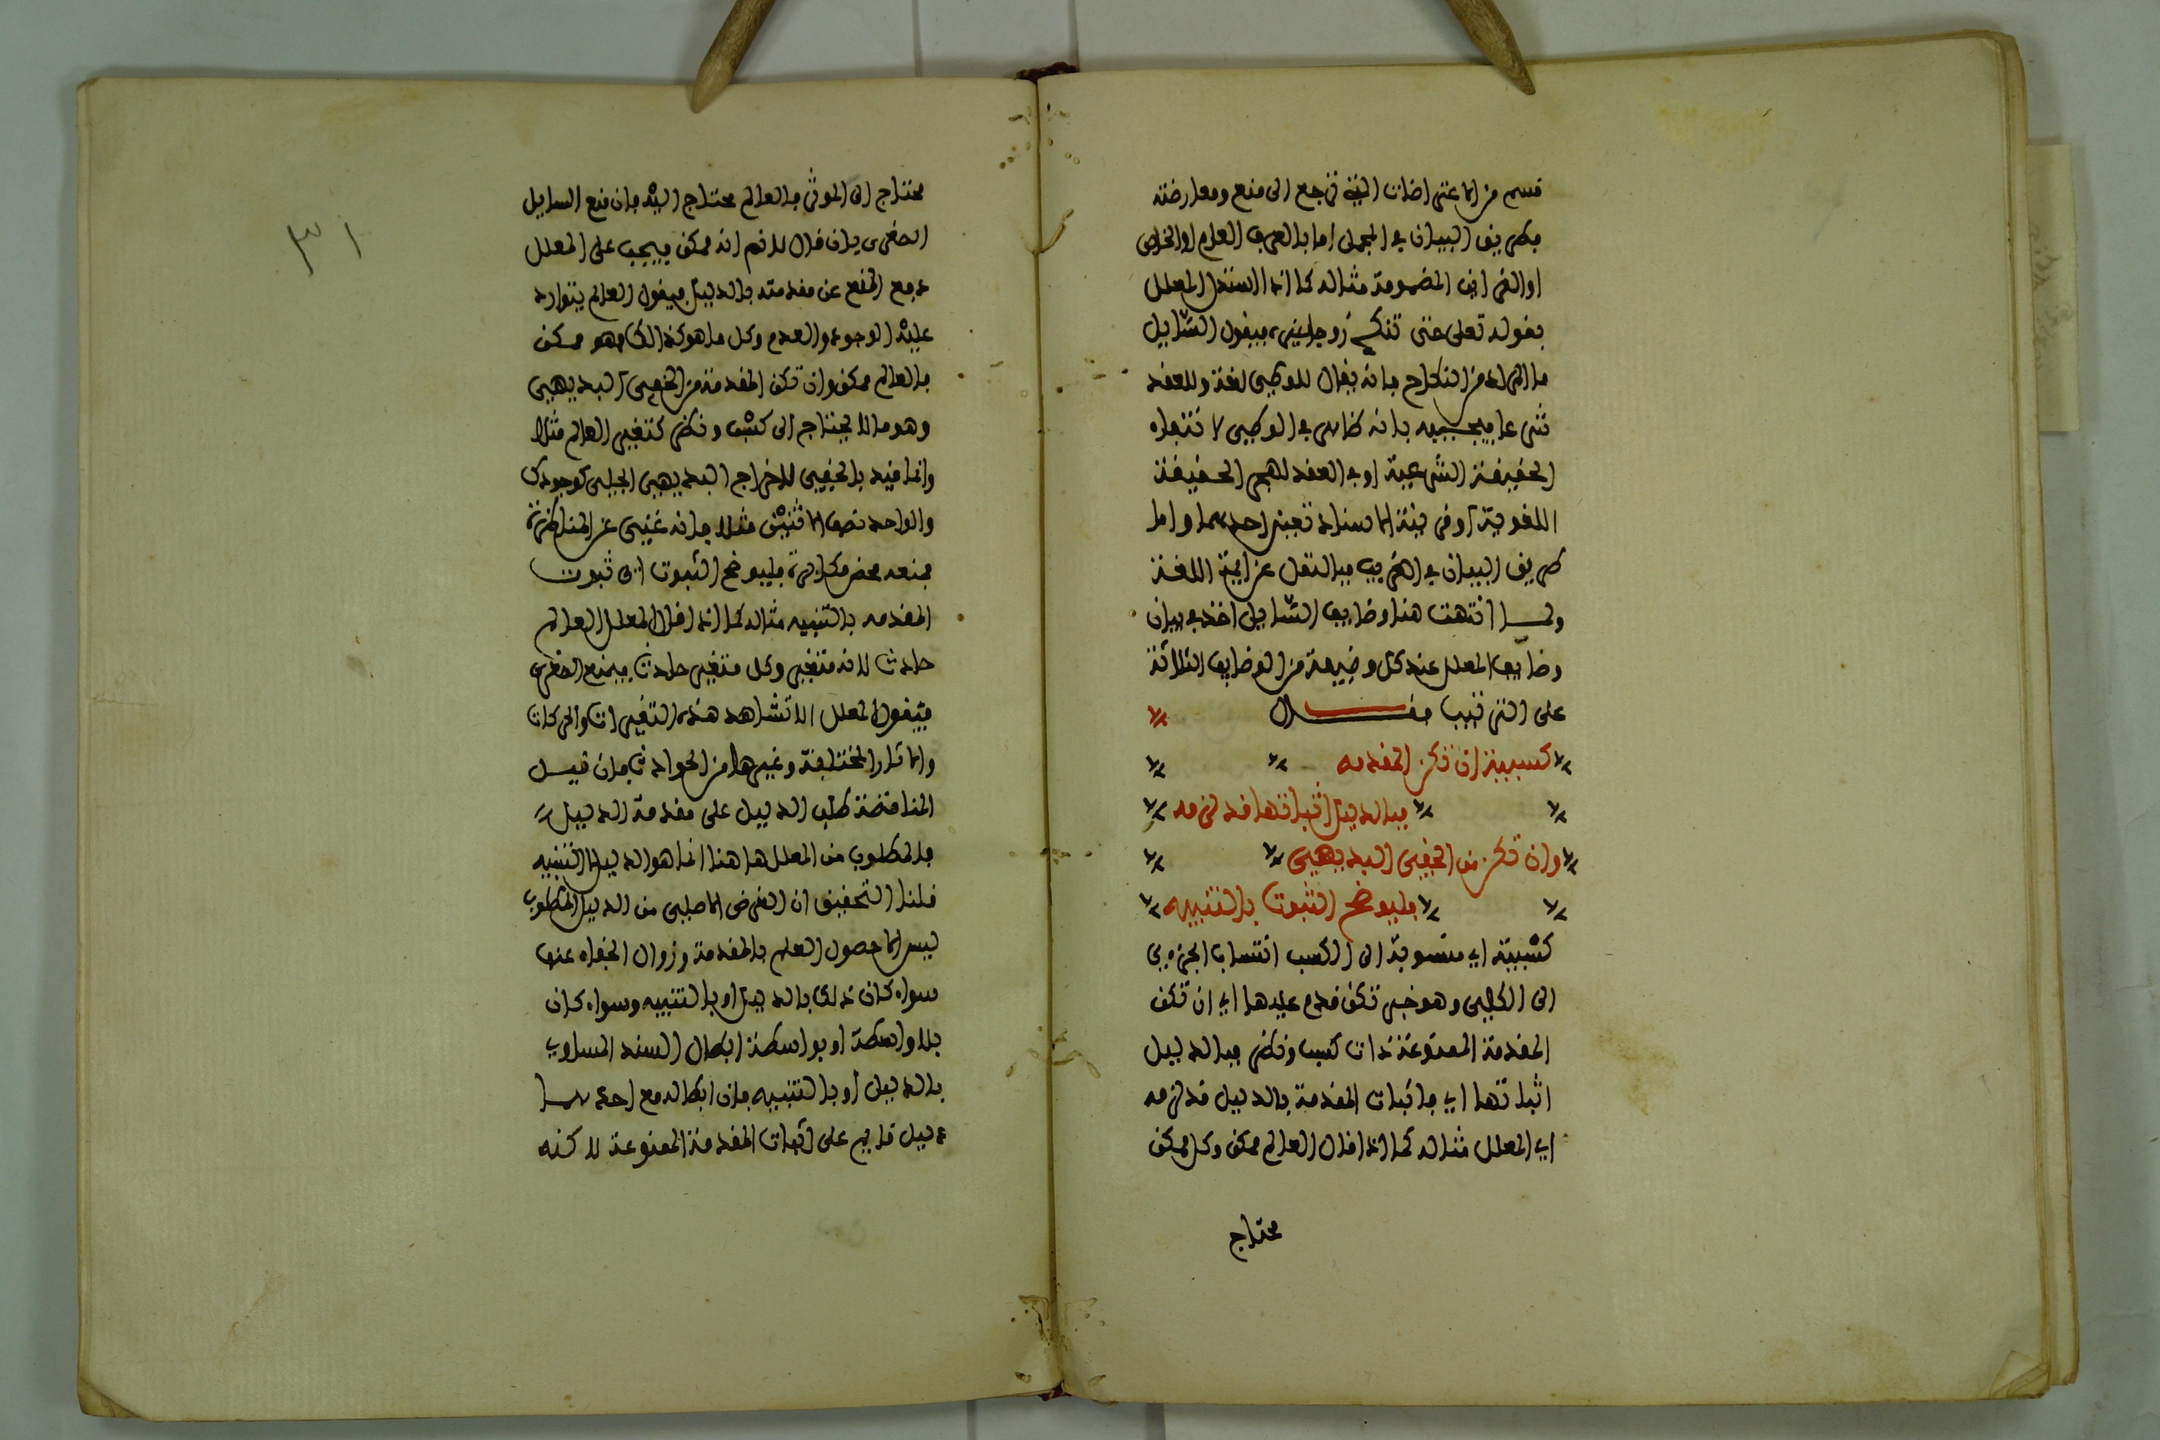 قسم من الاعتراضات التي ترجع الى منع ومعارضة
بطريق البيان في المجمل اما بالعرف العام او الخاص
او القراين المضمومة مثاله كما اذا استدل المعلل
بقوله تعلى حتى تنكح زوجا غيره فيقول السايل
ما المراد من النكاح فانه يقال للوطئ لغة وللعقد
شرعا فيجيبه بانه ظاهر في الوطئ لانتفاء
الحقيقة الشرعية او في العقد لهجر الحقيقة
اللغوية او قرينة الاسناد تعين احدهما واما
طريق البيان في الغريب فبالنقل عن ايمة اللغة
ولما انتهت هنا وظايف السايل اخذ في بيان
وظايف المعلل عند كل وظيفة من الوظايف الثلاثة
على الترتيب فقال
كسبية ان تكن المقدمه
فبالدليل اثباتها قد لزمه
وان تكن من الخفي البديهي
فليوضح الثبوت بالتنبيه
كسبية اي منسوبة الى الكسب انتساب الجزءي
الى الكلي وهو خبر تكن قدم عليها اي ان تكن
المقدمة الممنوعة ذات كسب ونظر فبالدليل
اثباتها اي فاثبات المقدمة بالدليل قد لزمه
اي المعلل مثاله كما اذا قال العالم ممكن وكل ممكن
محتاج
٣١
محتاج الى الموثر فالعالم محتاج اليه فان منع السايل
الصغرى بان قال لا نم انه ممكن فيجب على المعلل
دفع المنع عن مقدمته بالدليل فيقول العالم يتوارد
عليه الوجود والعدم وكل ما هو كذالك فهو ممكن
فالعالم ممكن وان تكن المقدمة من الخفي البديهي
وهو ما لا يحتاج الى كسب ونظر كتغير العالم مثلا
وانما قيد بالخفي لاخراج البديهي الجلي كوجودك
والواحد نصف الاثنين مثلا فانه غني عن المناظرة
فمنعه محض مكابرة فليوضح الثبوت اي ثبوت
المقدمه بالتنبيه مثاله كما اذا قال المعلل العالم
حادث لانه متغير وكل متغير حادث فيمنع الصغرى
فيقول المعلل الا تشاهد هذه التغيرات والحركات
والاثار المختلفة وغيرها من الحوادث فان قيل
المناقضة طلب الدليل على مقدمة الدليل
فالمطلوب من المعلل هاهنا انما هو الدليل لا التنبيه
قلنا التحقيق ان الغرض الاصلي من الدليل المطلوب
ليس الا حصول العلم بالمقدمة وزوال الخفاء عنها
سواء كان ذلك بالدليل او بالتنبيه وسواء كان
بلا واسطة او بواسطة ابطال السند المساوي
بالدليل او بالتنبيه فان ابطاله مع احدهما
دليل قايم على اثبات المقدمة الممنوعة لا كنه